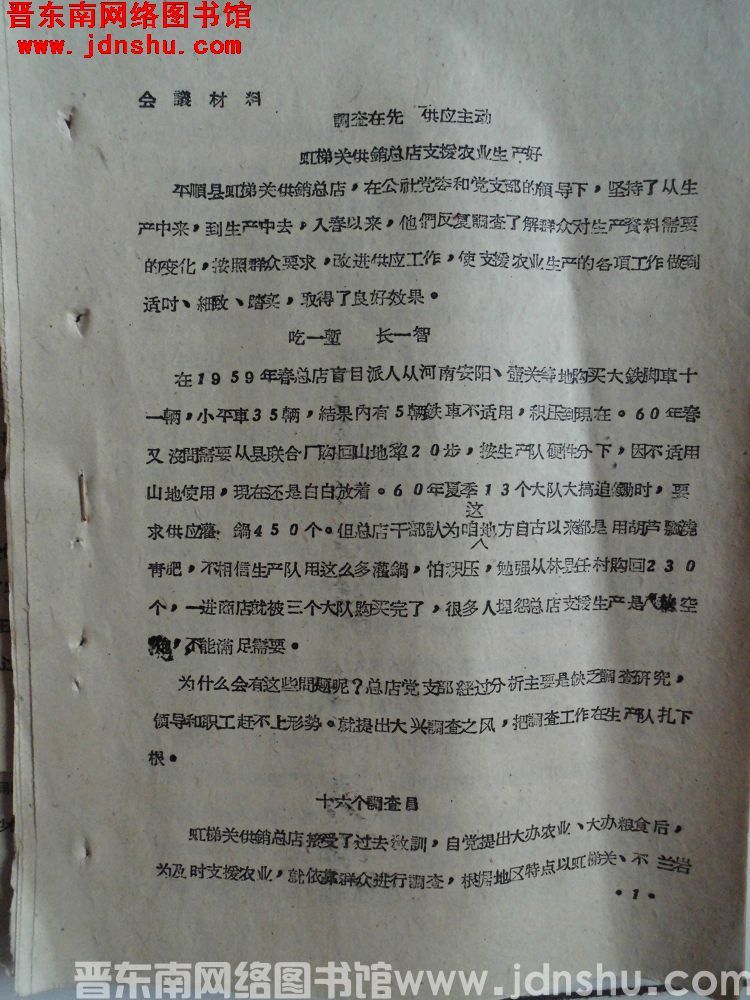 晋东南网络图书馆
www.jdnshu.com
会議材料
調查在先 供应主动
虹梯关供銷总店支援农业生产好
平順县虹梯关供銷总店，在公社党委和党支部的領导下，坚持了从生
产中来，到生产中去，入春以来，他們反复調查了解群众对生产資料需要
的变化，按照群众要求，改进供应工作，使支援农业生产的各項工作做到
适时、細致、踏实，取得了良好效果。
吃一塹 长一智
在1959年春总店盲目派人从河南安阳、壺关等地购买大鉄脚車十
一輛，小平車35輛，結果内有5輛鉄車不适用，积压到現在。60年春
又沒問需要从县联合厂购回山地犂20步，按生产队硬性分下，因不适用
山地使用，現在还是白白放着。60年夏季13个大队大搞追鋤时，要
求供应灌鍋450个。但总店干部認为咱这地方自古以来都是用胡芦瓢澆
青肥，不相信生产队用这么多灌鍋，怕积压，勉强从林县任村购回230
个，一进商店就被三个大队购买完了，很多人埋怨总店支援生产是空
不能滿足需要。
为什么会有这些問題呢？总店党支部經过分析主要是缺乏調查研究，
領导和职工赶不上形势。就提出大兴調查之风，把調查工作在生产队扎下
根。
十六个調查員
虹梯关供銷总店接受了过去敎訓，自党提出大办农业、大办粮食后，
为及时支援农业，就依靠群众进行調查，根据地区特点以虹梯关、不兰岩
·1·
晋东南网络图书馆www.jdnshu.com